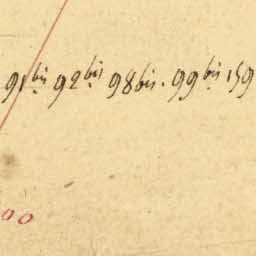 91 bis 92 bis 98 bis. 99 bis 159
00